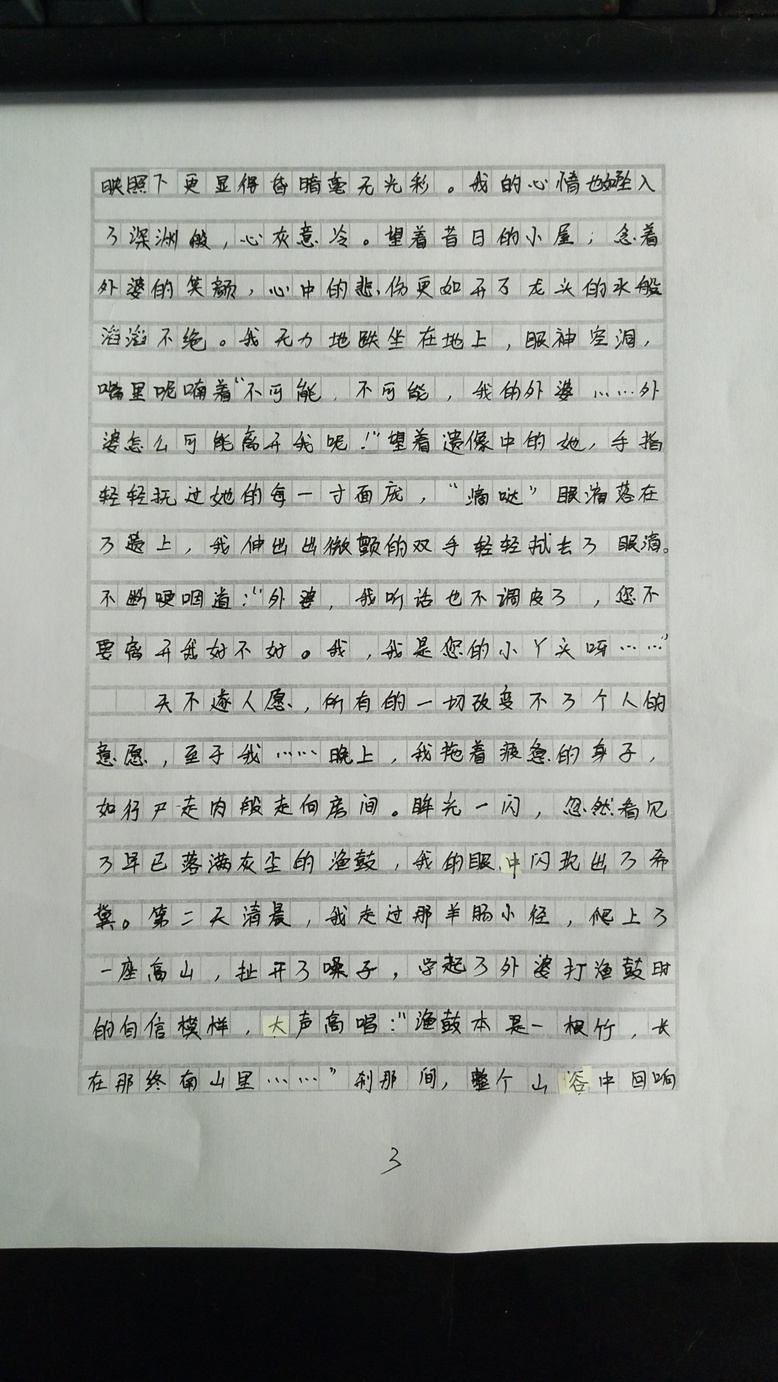 映照下更显得昏暗毫无光彩。我的心情也如坠入
了深渊般，心灰意冷。望着昔日的小屋；念着
外婆的笑颜，心中的悲伤更如开了龙头的水般
滔滔不绝。我无力地跌坐在地上，眼神空洞，
嘴里呢喃着“不可能，不可能，我的外婆……外
婆怎么可能离开我呢！”望着遗像中的她，手指
轻轻抚过她的每一寸面庞，“嘀哒”眼泪落在
了遗上，我伸出出微颤的双手轻轻拭去了眼泪。
不断哽咽道：“外婆，我听话也不调皮了，您不
要离开我好不好。我，我是您的小丫头呀……”
天不遂人愿，所有的一切改变不了个人的
意愿，至于我……晚上，我拖着疲惫的身子，
如行尸走肉般走向房间。眸光一闪，忽然看见
了早已落满灰尘的渔鼓，我的眼中闪现出了希
冀。第二天清晨，我走过那羊肠小径，爬上了
一座高山，扯开了嗓子，学起了外婆打渔鼓时
的自信模样，大声高唱：“渔鼓本是一根竹，长
在那终南山里……”刹那间，整个山谷中回响
3